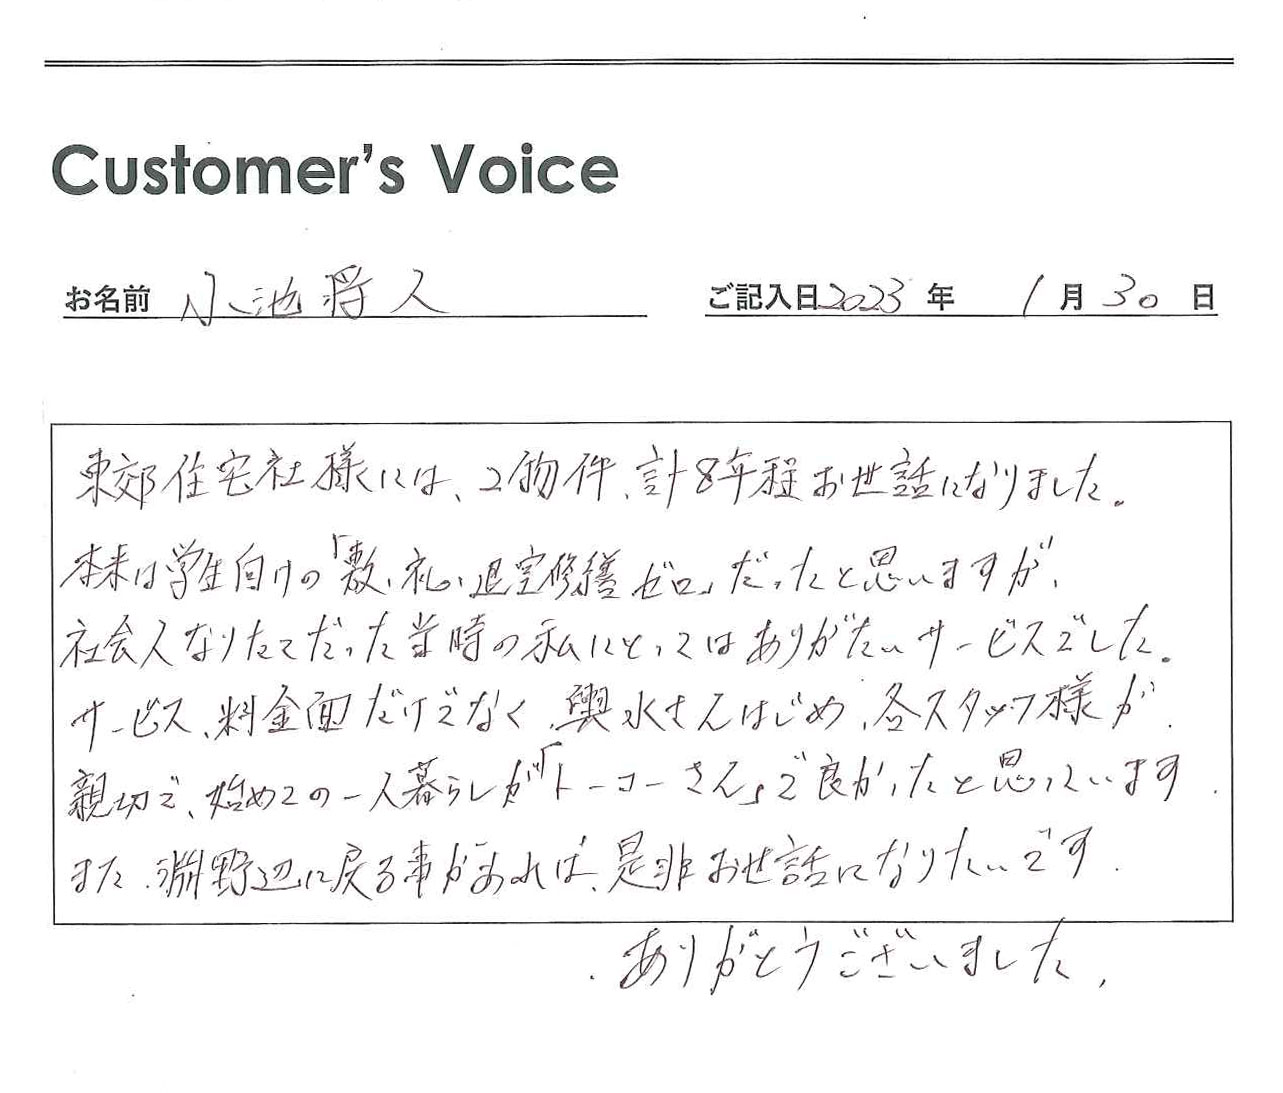 Customer's Voice
お名前 小池将人
ご記入日2023年 1月30日
東郊住宅社様には、2物件、計8年程お世話になりました。
本来は学生向けの「敷、礼、退室修繕ゼロ」だったと思いますが、
社会人なりたてだった当時の私にとってはありがたいサービスでした。
サービス、料金面だけでなく、輿水さんはじめ、各スタッフ様が、
親切で、始めての一人暮らしが「トーコーさん」で良かったと思っています.
また、淵野辺に戻る事があれば、是非お世話になりたいです.
ありがとうございました.